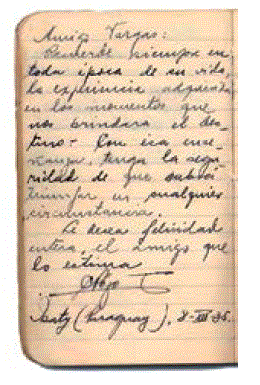 Amigo Vargas:
Recuerde siempre en
toda época de su vida,
la experiencia adquirida
en los momentos que
nos brindara el des-
tino - Con esa ense-
ñanza, tenga la segu-
ridad de que sabrá
triunfar en cualquier
circunstancia.
Le desea felicidad
entera, el amigo que
lo estima
(Paraguay), 8-XII-35.